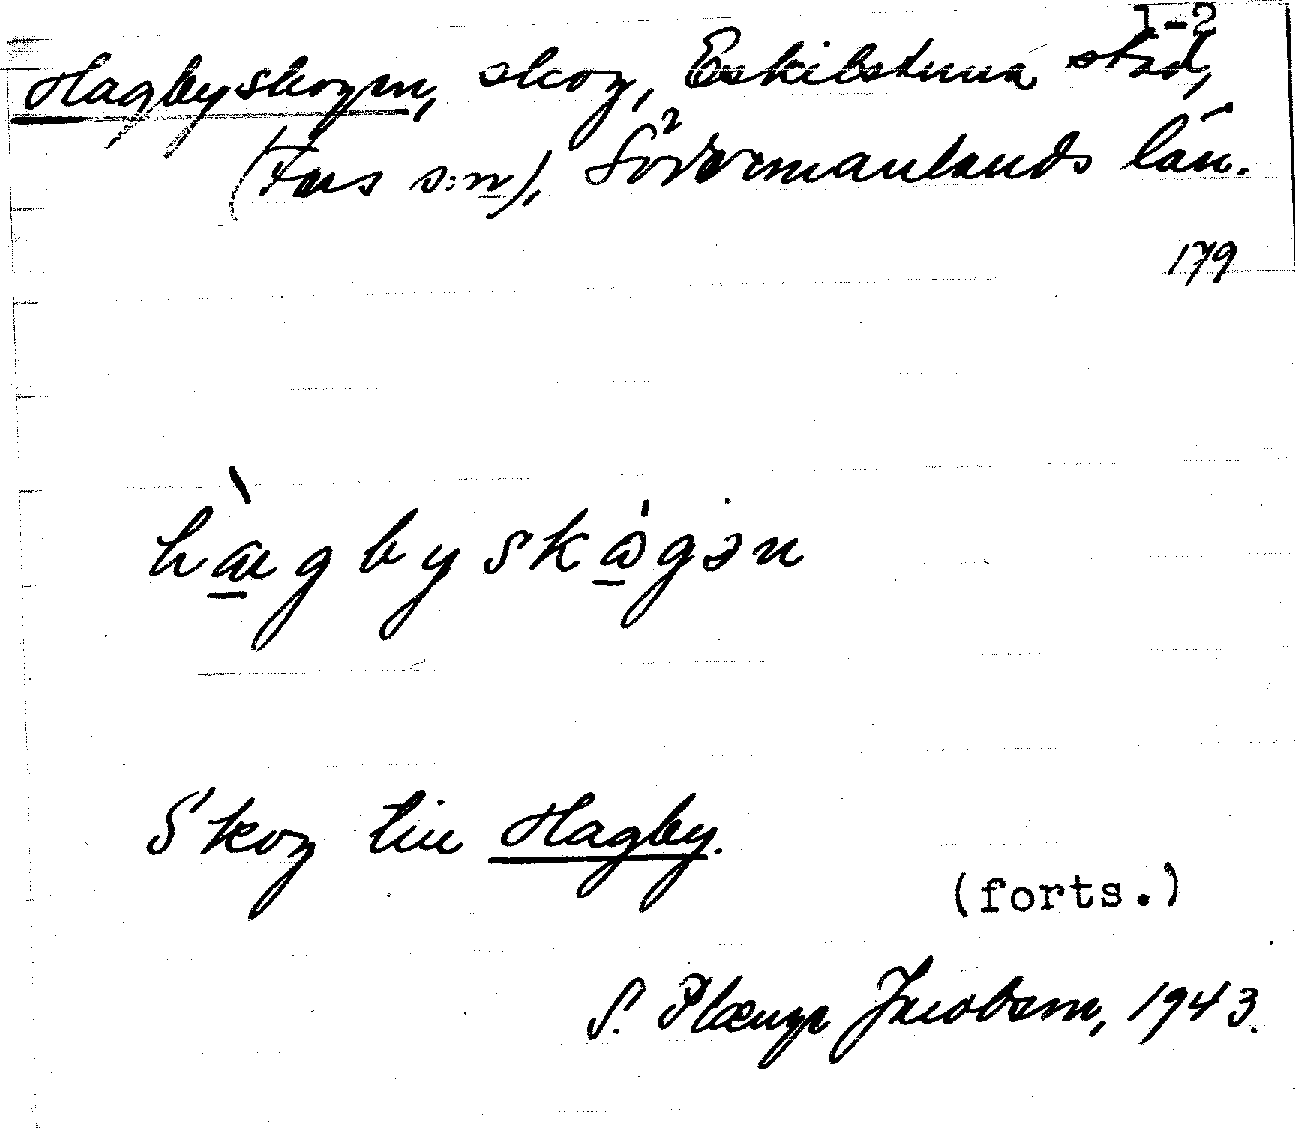 1-2
Hagbyskogen, skog, Eskilstuna stad,
(Fors s:n), Södermanlands län.
179
hàgbyskògən
Skog till Hagby.
(forts.)
S. Plænge Jacobson, 1943.